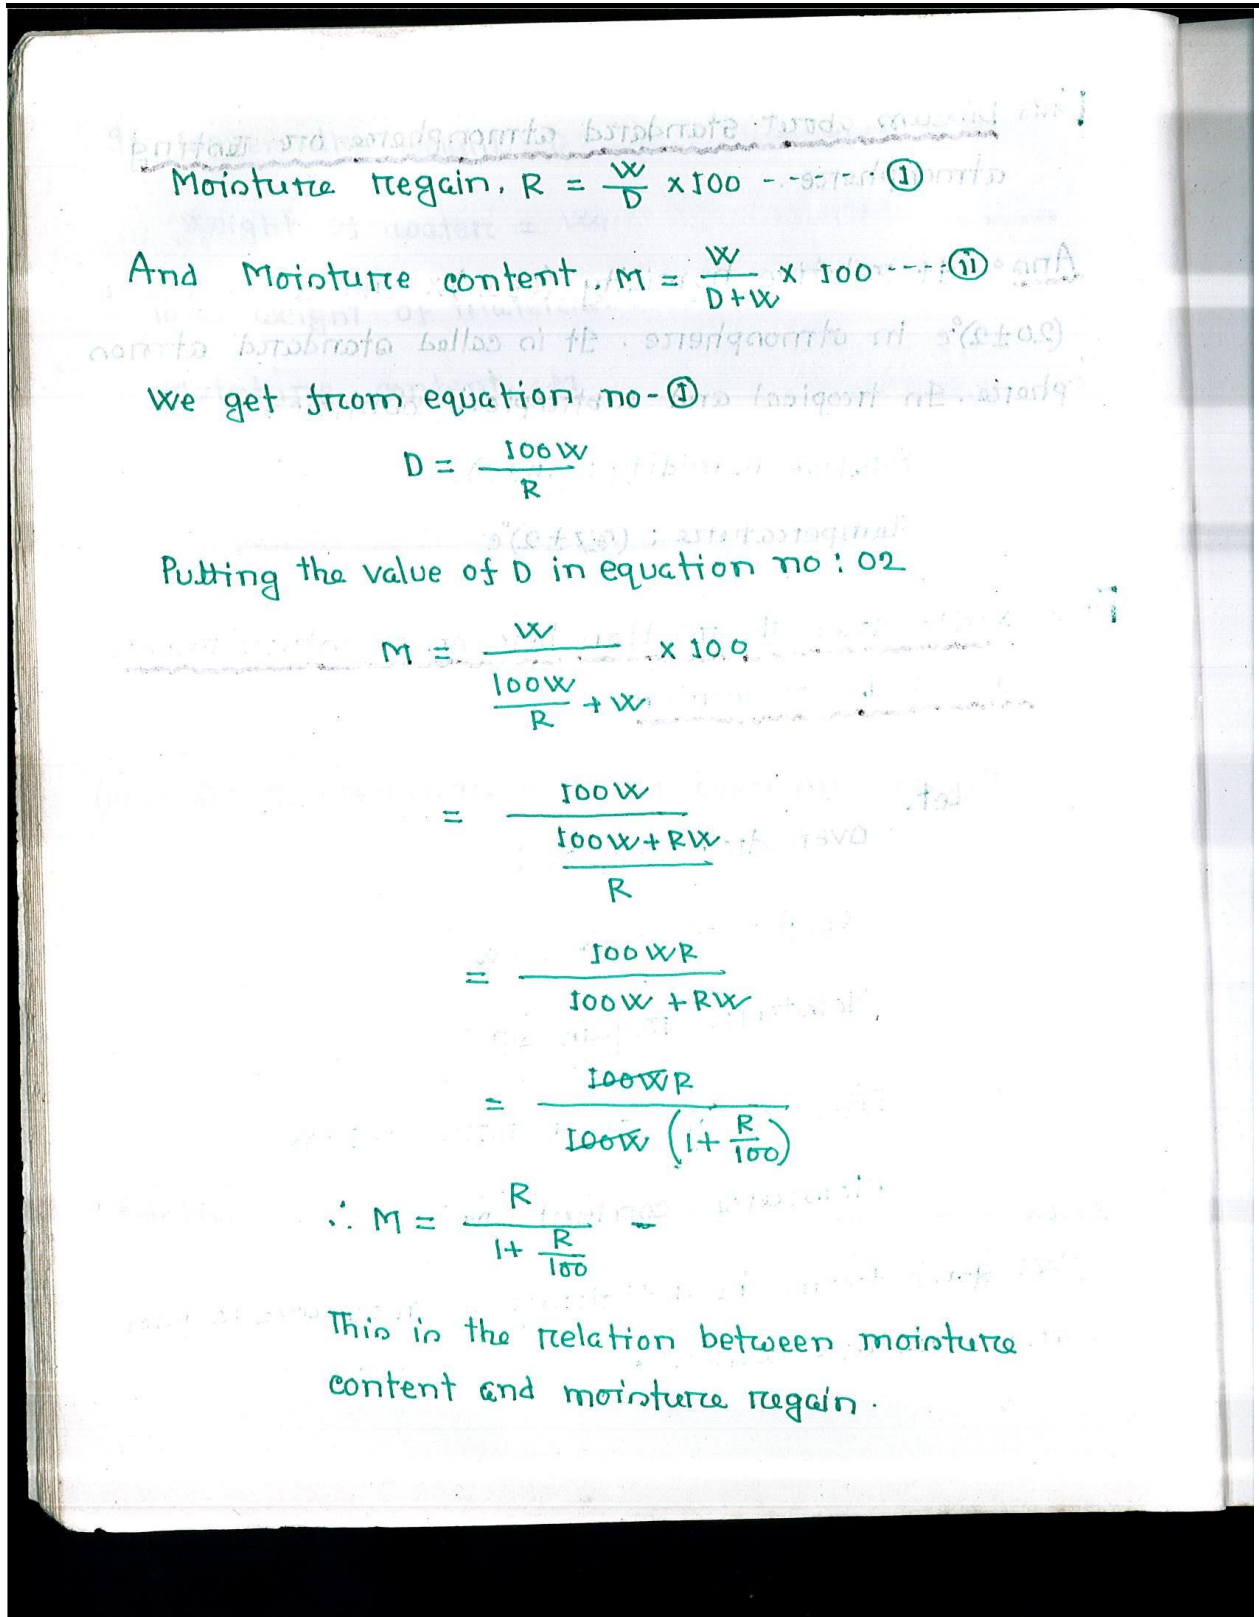 Moisture regain, R = W/D × 100 ------ (I)
And Moisture content, M = W/(D+W) × 100 ---- (II)
We get from equation no-(I)
D = 100W/R
Putting the value of D in equation no : 02
M = W/(100W/R + W) × 100
= 100W/((100W+RW)/R)
= 100WR/(100W+RW)
= 100WR/(100W(1+R/100))
∴ M = R/(1+R/100)
This is the relation between moisture
content and moisture regain.